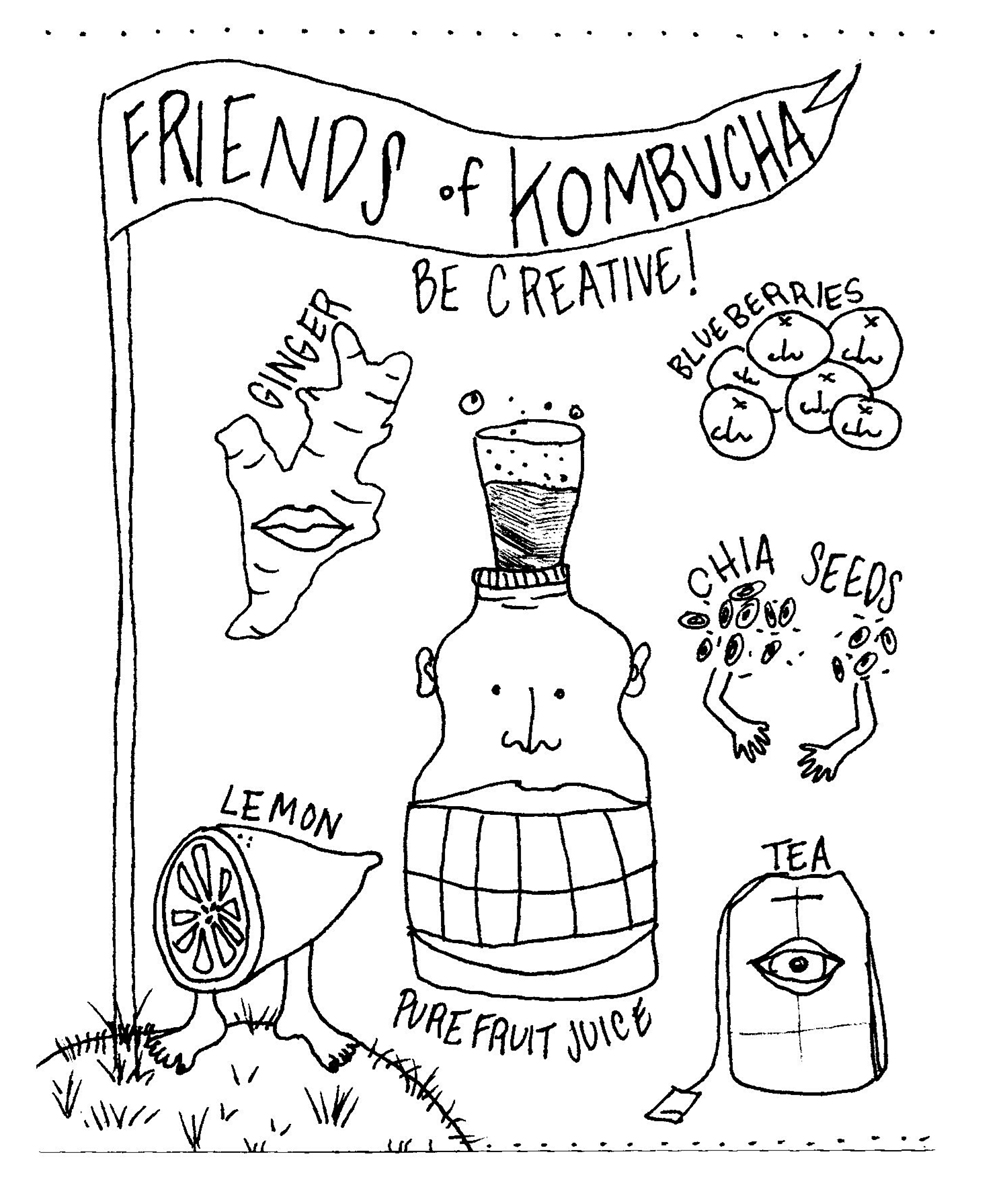 FRIENDS of KOMBUCHA
BE CREATIVE!
GINGER
BLUEBERRIES
CHIA SEEDS
LEMON
TEA
PURE FRUIT JUICE